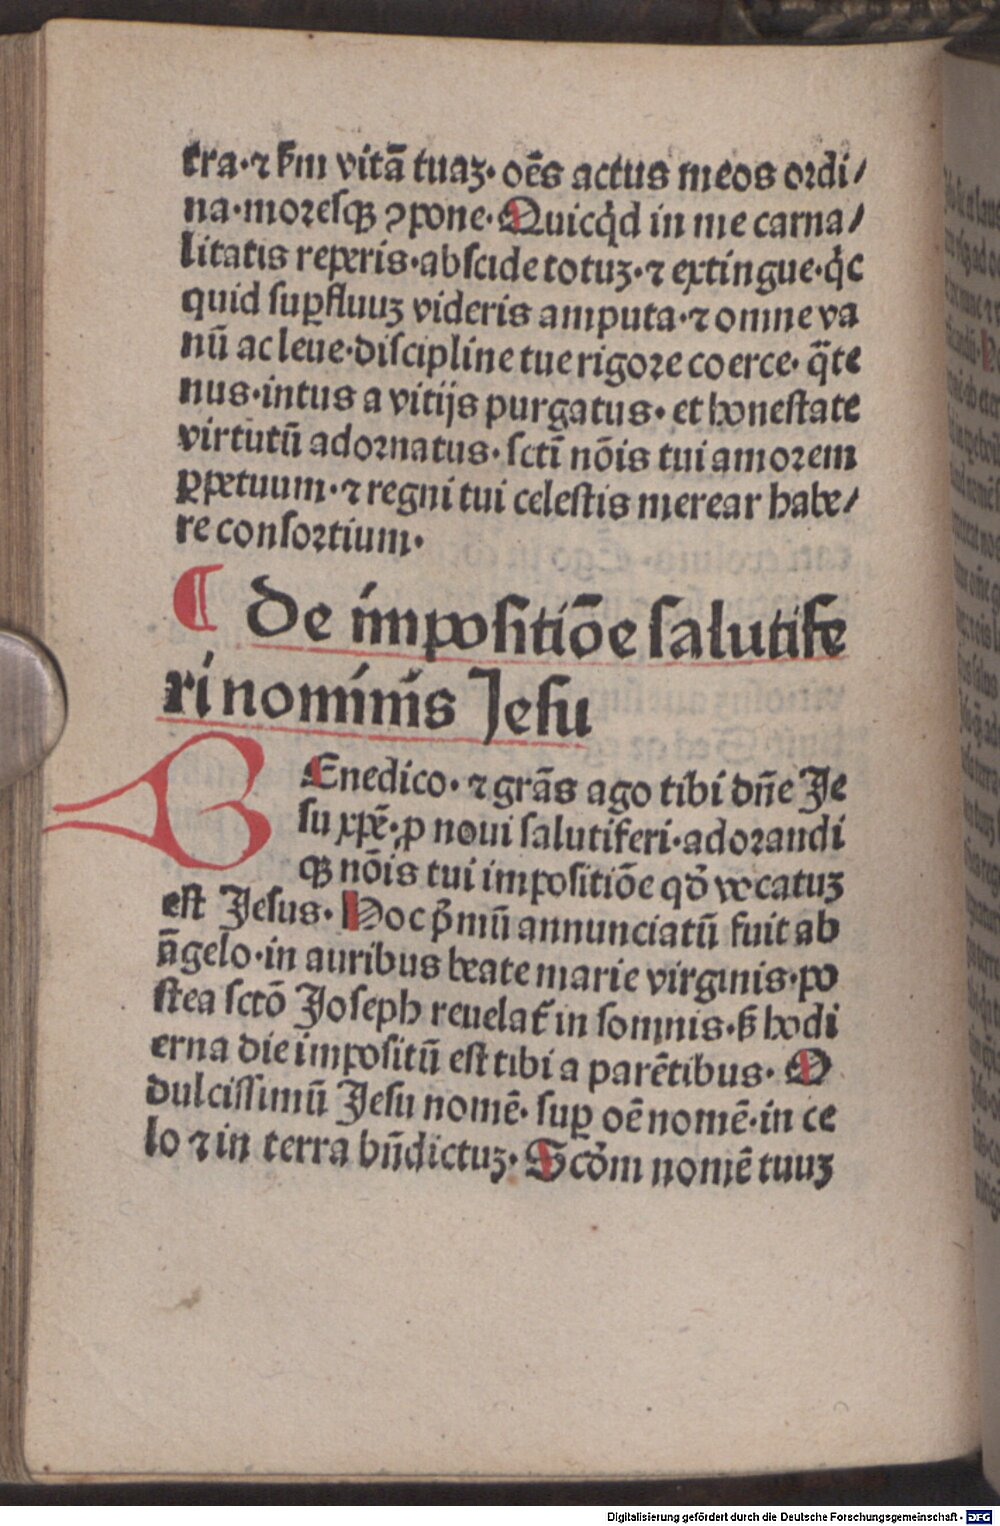 tra·⁊ ẜm vitā tuaꝫ· oēs actus meos ordi/
na·moresqꝫ ꝯpone·Quicq̇d in me carna/
litatis reperis·abscide totuꝫ·⁊ extingue·q̇c
quid suꝑfluuꝫ videris amputa·⁊ omne va
nū ac leue·discipline tue rigore coerce· q̄te
nus·intus a vitijs purgatus· et honestate
virtutū adornatus· scti nōis tui amorem
ꝑpetuum·⁊ regni tui celestis merear habe/
re consortium·
¶ De impositiōe salutife
ri nominis Jesu
BEnedico· ⁊ grās ago tibi dn̄e Je
su xp̄e·ꝓ noui salutiferi·adorandi
qꝫ nōis tui impositiōe qd̄ vocatuꝫ
est Jesus· Hoc p̄mū annunciatū fuit ab
āgelo·in auribus beate marie virginis·po
stea sctō Joseph reuelat̄ in somnis·ẜ hodi
erna die impositū est tibi a parētibus· O
dulcissimū Jesu nomē· suꝑ oē nomē·in ce
lo ⁊ in terra bn̄dictuꝫ· Scd̄m nomē tuuꝫ
Digitalisierung gefördert durch die Deutsche Forschungsgemeinschaft - DFG